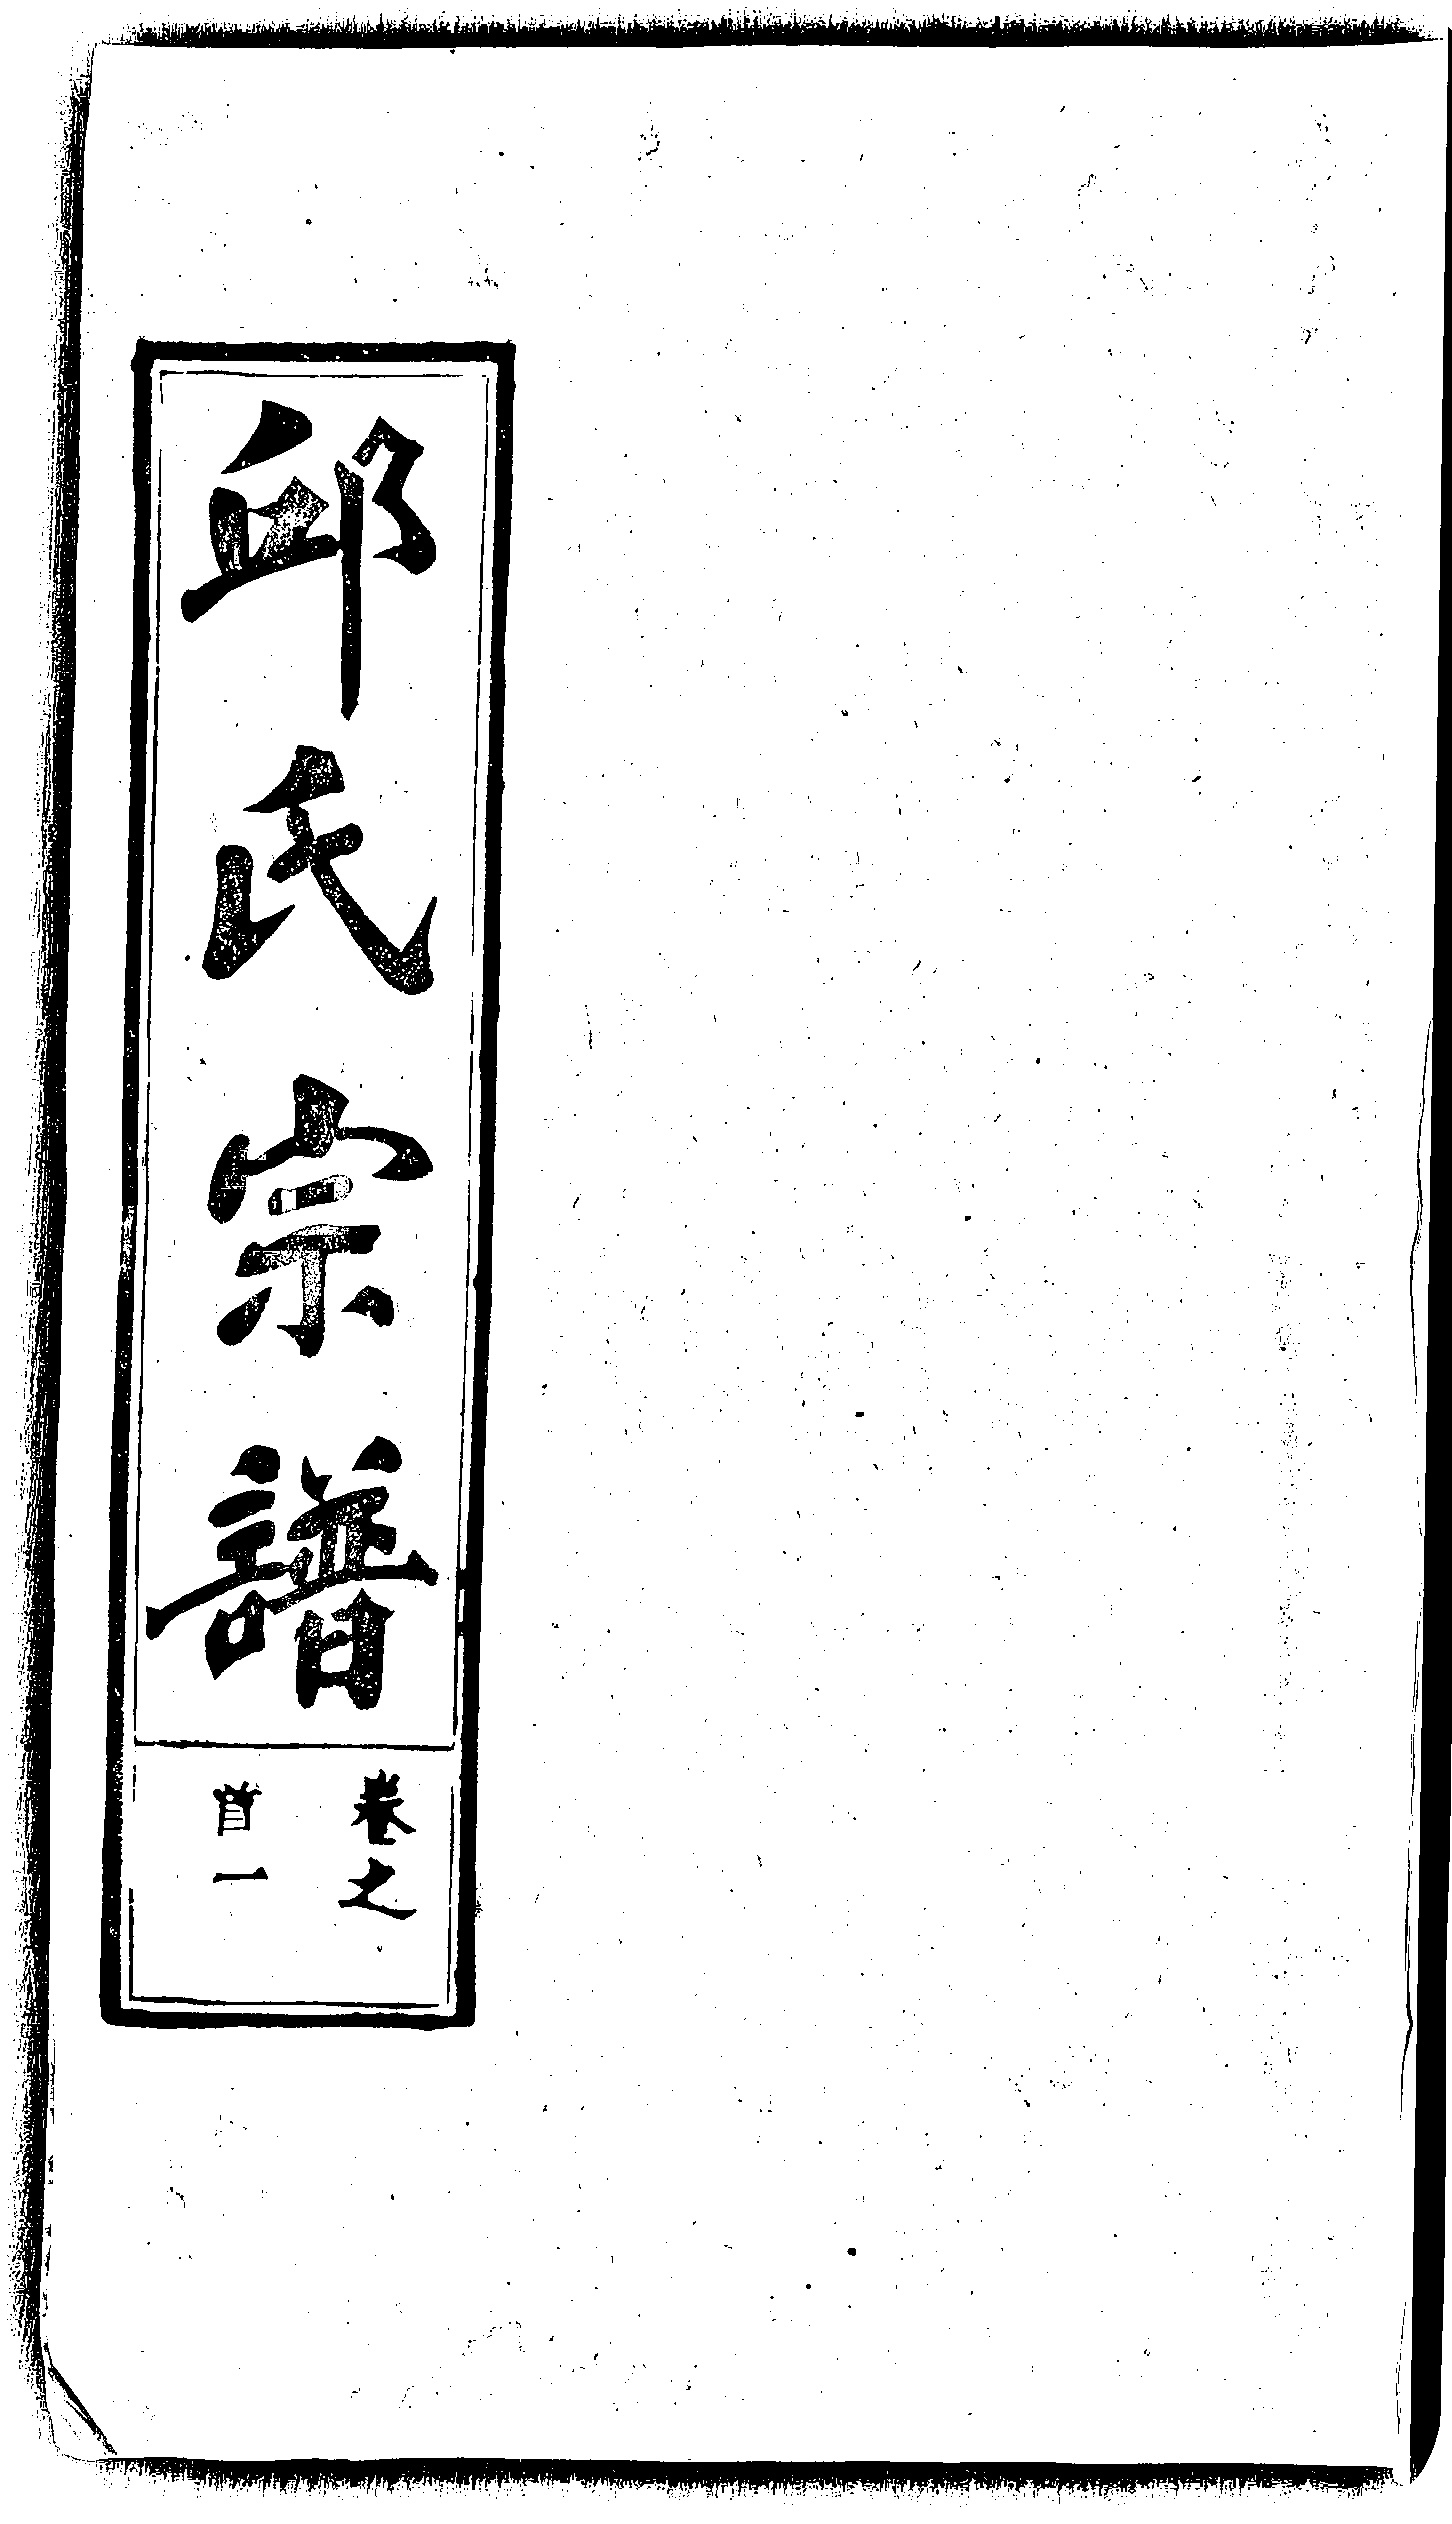 邱氏宗譜
卷之
首一